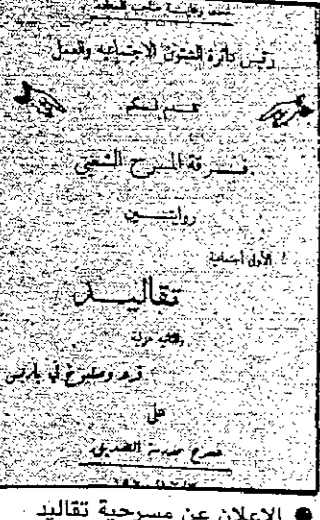 تحت رعاية صاحب
رئيس دائرة الشئون الاجتماعية والعمل
تقدم لكم
فرقة المسرح الشعبي
روايتين
الأولى اجتماعية
تقاليد
والثانية هزلية
في باريس
على
مسرح مدرسة الصديق
الاعلان عن مسرحية تقاليد